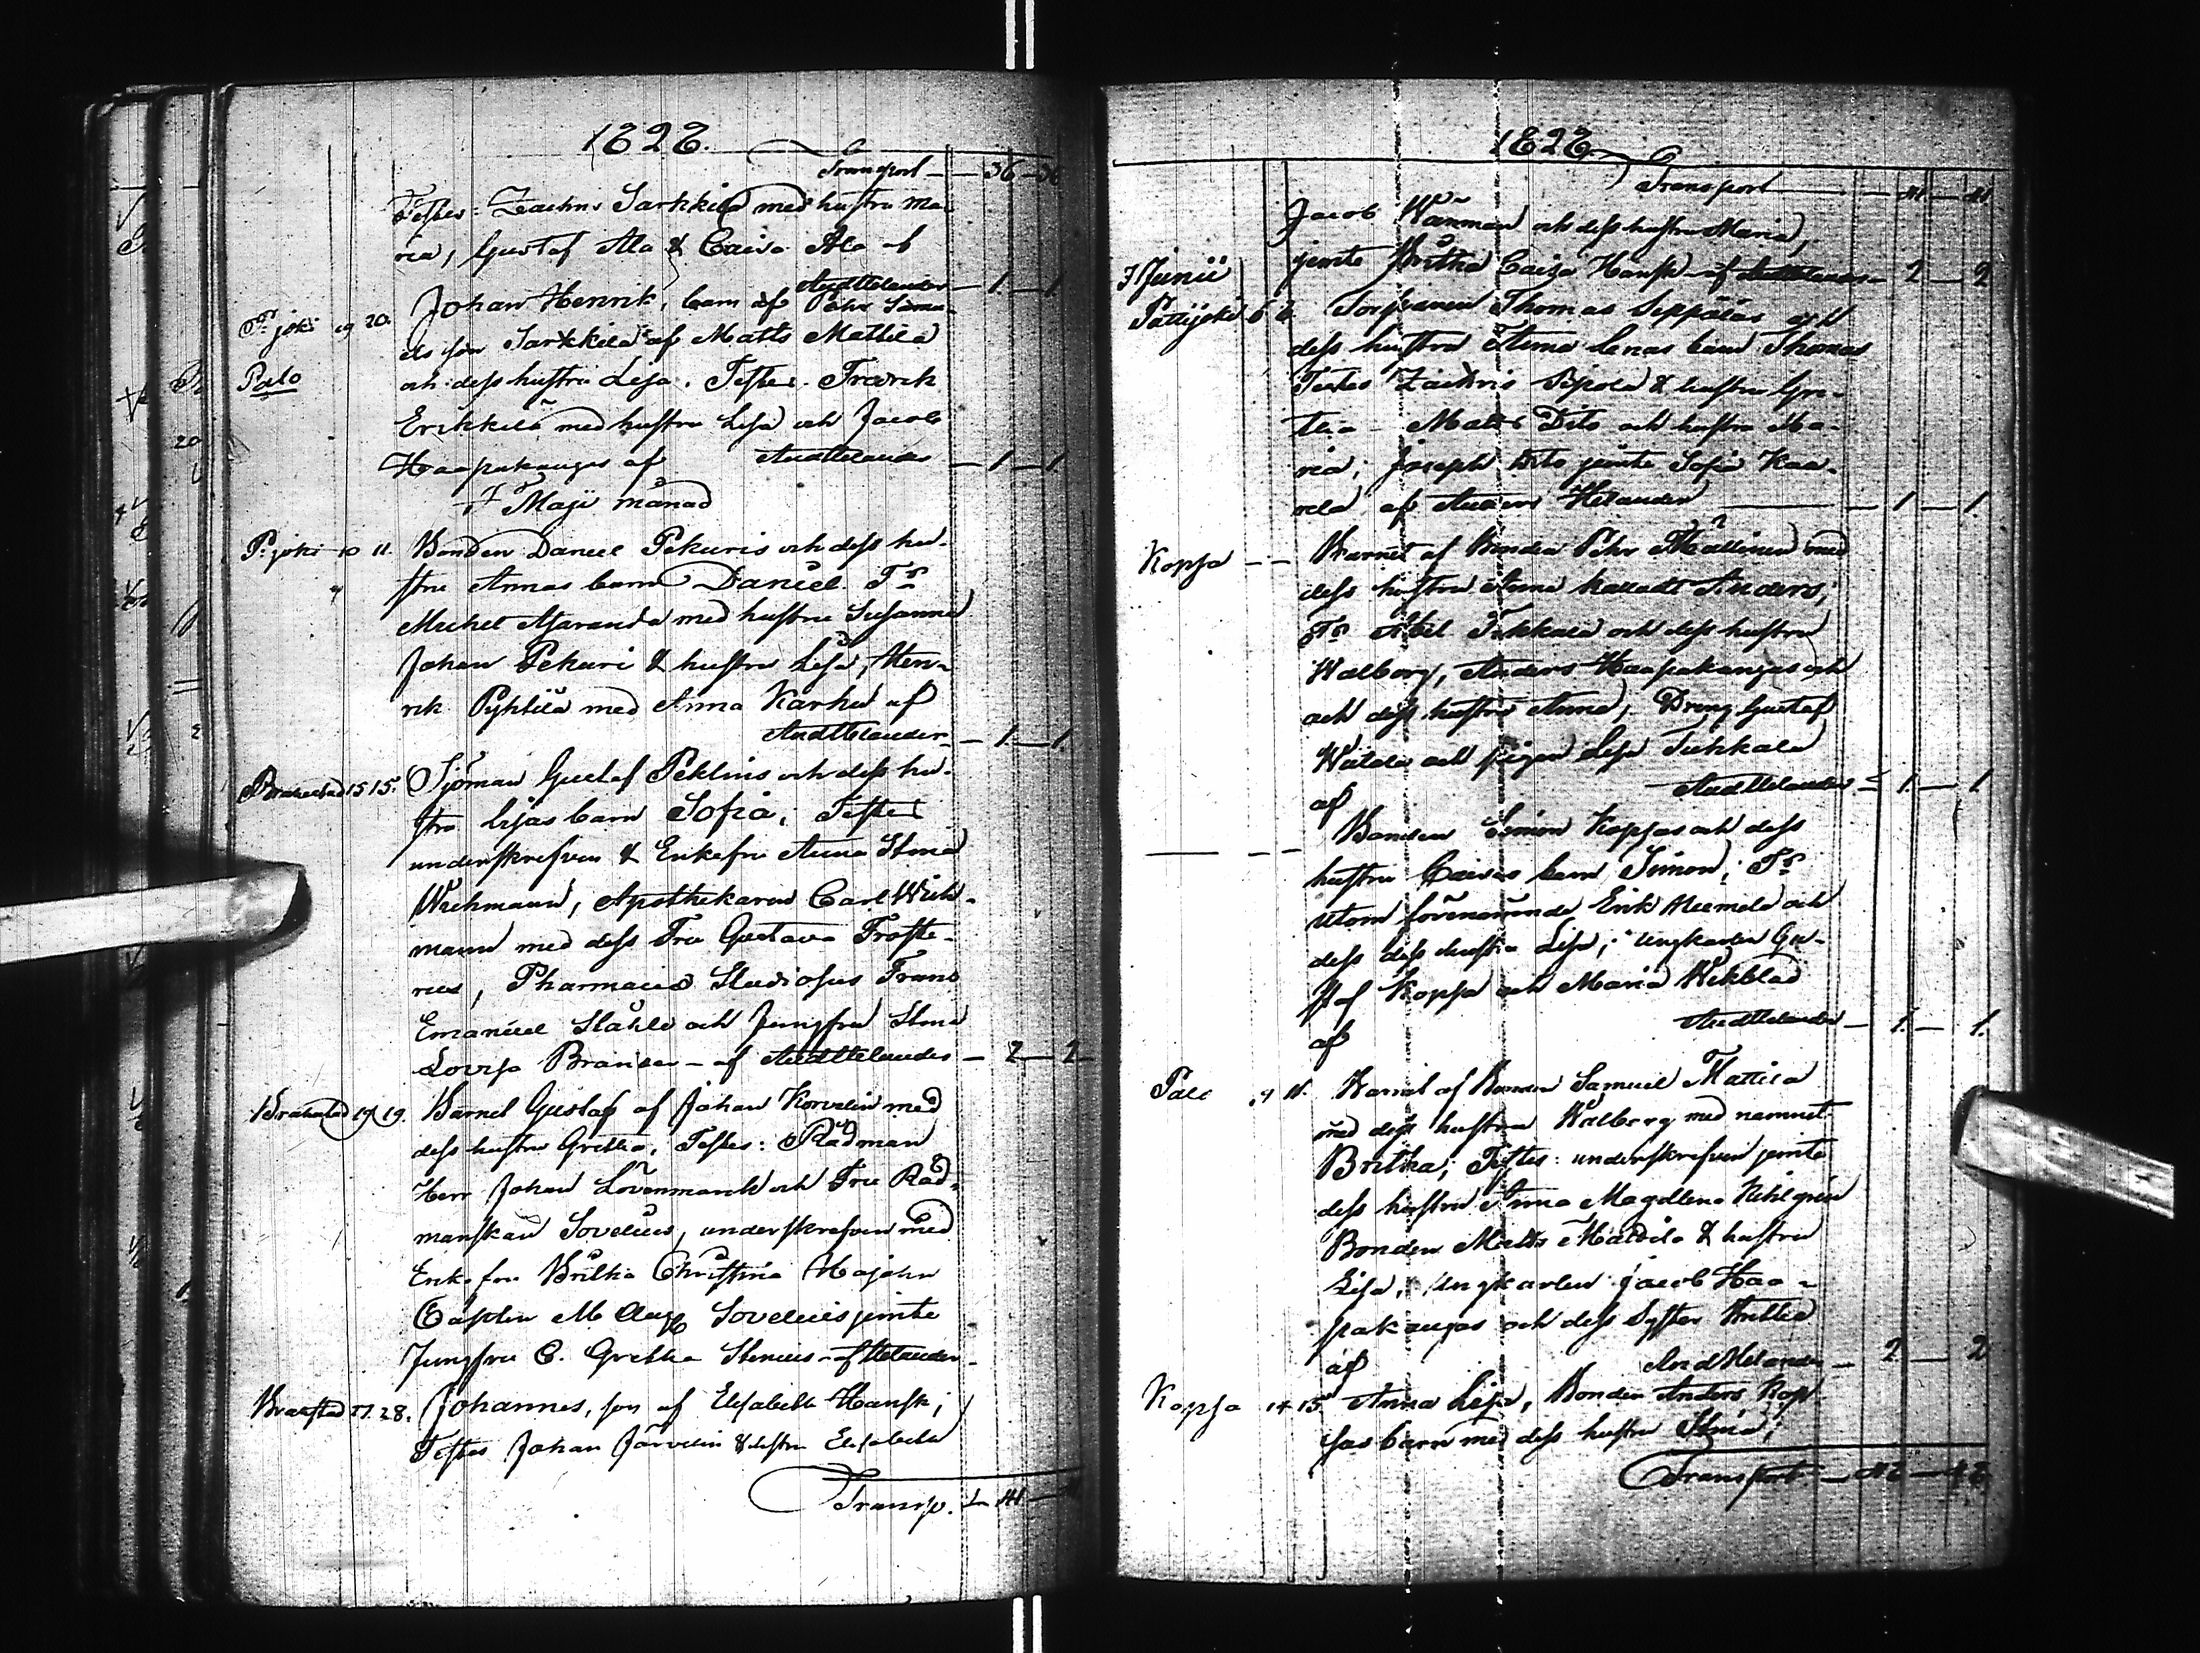 1828.
Transport — 36 — 36
Testes: Zachris Sarkkila med hustru Ma-
ria, Gustaf Ala & Caisa Ala af
And Helander — 1 — 1
P:joki 19 20. Johan Henrik, barn af Pehr Simu-
Palo
els son Sarkkila af Matts Mattila
och dess hustru Lisa. Testes. Fredrik
Erikkilä med hustru Lisa och Jacob
Haapakangas af And Helander — 1 — 1
I Maji månad
P:joki 10 11. Bonden Daniel Pekuris och dess hu-
stru Annas barn Daniel. T:s
Michel Maranda med hustru Susanna
Johan Pekuri & hustru Lisa, Hen-
rik Pyhtilä med Anna Karhu af
And Helander — 1 — 1
Brahestad 15 15. Sjöman Gustaf Peklins och dess hu-
stru Lisas barn Sofia; Testes
underskrefven & Enkefru Anna Stina
Wichmann, Apothekaren Carl Wich-
mann med dess Fru Gustava Froste-
rus, Pharmaciæ Studiosus Frans
Emanuel Ståhle och Jungfru Stina
Lovisa Brander — af And Helander — 2 — 2
Brahestad 19 19. Barnet Gustaf af Johan Korvelin med
dess hustru Gretha. Testes: Rådman
Herr Johan Lövenmarck och Fru Råd-
manskan Sovelius, underskrefven med
Enkefru Britha Christina Majahn
Capten M. Aug Sovelius jemte
Jungfru C. Gretha Stenius — af Helander
Brahestad 27. 28. Johannes, son af Elisabeth Hansk;
Testes Johan Järvelin & hustru Elisabeth
Transp. — 41 — 41
1828.
Transport — 41 — 41
Jacob Wänman och dess hustru Maria,
jemte Britha Caisa Hansk af And Helander — 2 — 2
I Junii
Pattijoki 6 8. Torparen Thomas Seppälas och
dess hustru Anna Lenas barn Thomas
Testes Zachris Sipola & hustru Gre-
tha — Matts Dito och hustru Ma-
ria; Joseph Dito jemte Sofia Kaa-
rela af Anders Helander — 1 — 1
Kopsa — — Barnet af Bonden Pehr Mattinen med
dess hustru Anna kalladt Anders;
T:s Abel Tukkala och dess hustru
Walborg, Anders Haapakangas och
och dess hustru Anna, Dreng Gustaf
Watula och pigan Lisa Tuhkala
af And Helander — 1 — 1
— — — Bonden Simon Kopsas och dess
hustru Caisas barn Simon; T:s
utom förenämnde Erik Niemelä och
dess dess hustru Lisa; ungkarlen Gu-
staf Kopsa och Maria Wikblad
af And Helander — 1. — 1.
Palo 9 11. Barnet af Bonden Samuel Mattila
med dess hustru Walborg med namnet
Britha; Testes: underskrefven jemte
dess hustru Anna Magdlena Kihlgren
Bonden Matts Mattila & hustru
Lisa, Ungkarlen Jacob Haa-
pakangas och dess Syster Britha
af And Helander — 2 — 2
Kopsa 14 15 Anna Lisa, Bonden Anders Kop-
sas barn med dess hustru Stina;
Transport — 48 — 48